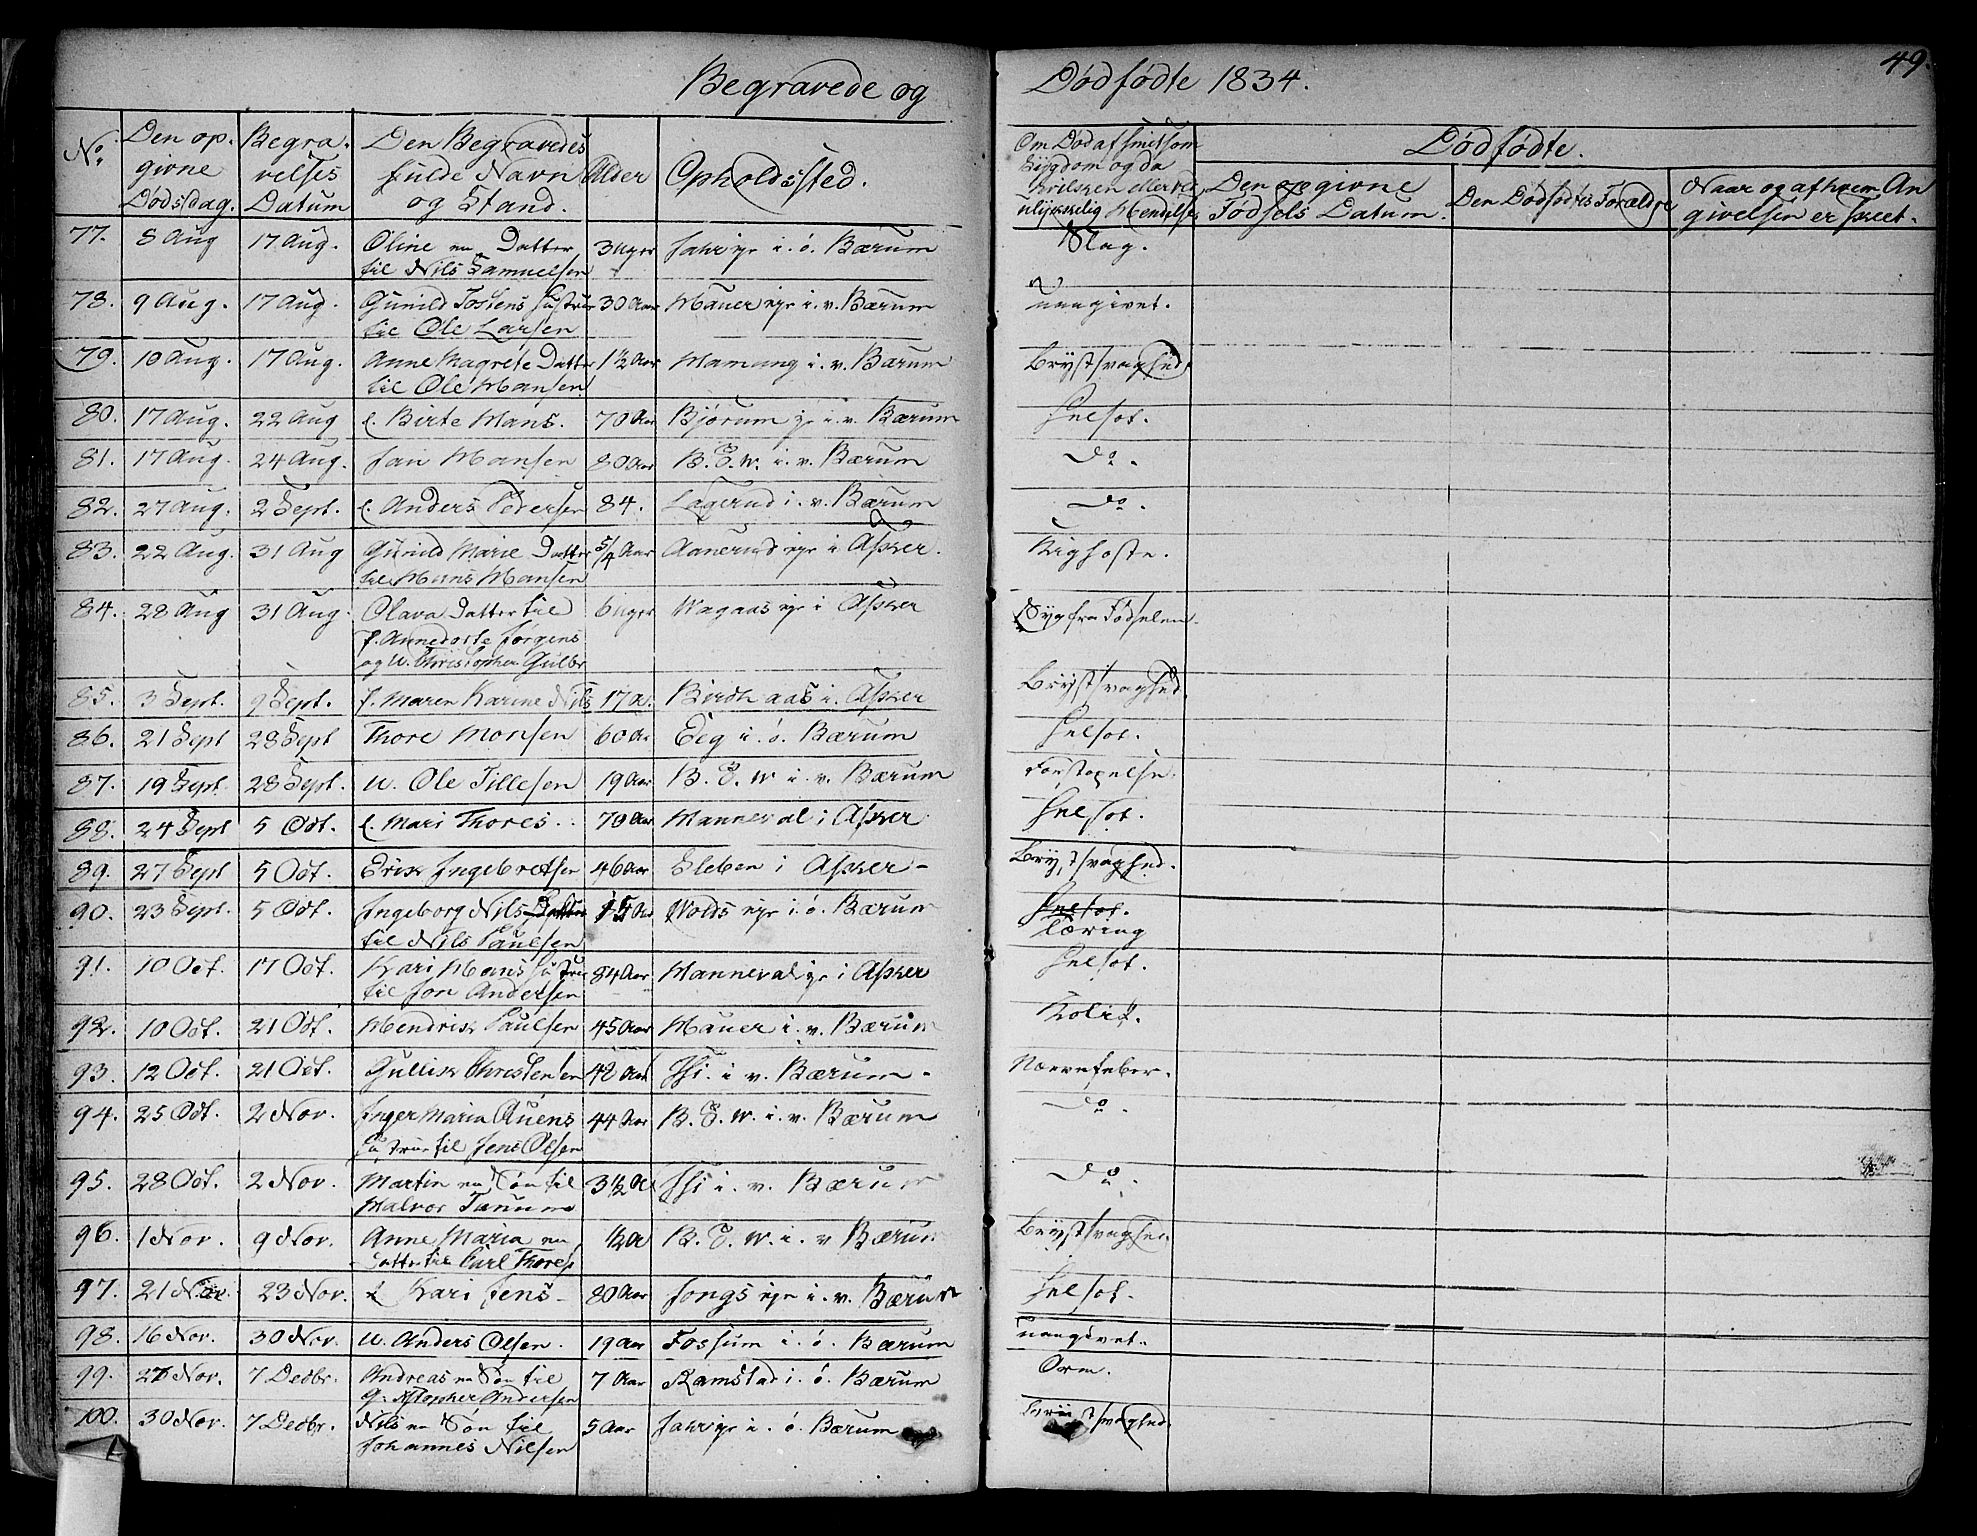 49.
Begravede og Dødfødte 1834.
No. Den opgivne Dødsdag. Begravelses Datum Den Begravedes fulde Navn og Stand. Alder Opholdssted. Om Død af smitsom Sygdom og da hvilken eller ved ulykkelig Hendelse Dødfødte.
Den opgivne Fødsels Datum. Den Dødfødtes Forældre Naar og af hvem Angivelsen er skeet.
77. 8 Aug 17 Aug. Oline en Datter 3 Uger i. ø. Bærum Slag.
til Nils Samuelsen
78. 9 Aug. 17 Aug. Gunild Tostens Hustrue 30 Aar Hauer eje i. v. Bærum uangivet.
til Ole Larsen
79. 10 Aug. 17 Aug. Anne Magrete Datter 1½ Aar Hamang i. v. Bærum Brystsvaghed.
til Ole Hansen
80. 17 Aug. 22 Aug E. Birte Hans. 70 Aar Bjørum eje i. v. Bærum Helsot.
81. 17 Aug. 24 Aug. Jan Hansen 80 Aar B. E. W. i. v. Bærum Do.
82. 27 Aug. 2 Sept. E. Anders Pedersen 84. i. v. Bærum Do.
83. 22 Aug. 31 Aug Gunild Marie Datter 5/4 Aar Aanerud eje i Asker. Kighoste.
til Hans Hansen
84. 28 Aug 31 Aug. Olava Datter til 6 Uger Wagaas eje i Asker Syg fra Fødselen.
P. Annedorte Jørgens
og U. Christopher Gulbr
85. 3 Sept. 9 Sept. P. Maren Karine Nils 17 A. aas i. Asker Brystsvaghed.
86. 21 Sept 28 Sept Thore Monsen 60 Aar Eeg i. ø. Bærum Helsot.
87. 19 Sept. 28 Sept. U. Ole Tillesen 19 Aar B. E. W i. v. Bærum Forstopelse.
88. 24 Sept 5 Oct. E. Mari Thores. 70 Aar i Asker Helsot.
89. 27 Sept 5 Oct. Erik Ingebretsen 46 Aar Eleben i Asker Brystsvaghed.
90. 23 Sept. 5 Oct. Ingeborg Nils Datter 15 Aar Wolds eje i. ø. Bærum Helsot.
til Nils Paulsen Tæring
91. 10 Oct. 17 Oct. Kari Hans Hustrue 84 Aar eje i Asker Helsot.
til Jon Andersen
92. 10 Oct. 21 Oct. Hendrik Paulsen 45 Aar Hauer i. v. Bærum Kolik.
93. 12 Oct. 21 Oct. Gullik Christensen 42 Aar i v. Bærum. Nervefeber.
94. 25 Oct. 2 Nov. Inger Maria Auens 44 Aar B. E. W. i. v. Bærum Do.
Hustrue til Jens Olsen
95. 28 Oct. 2 Nov. Martin en Søn til 3½ A i. v. Bærum Do.
Halvor Tanum
96. 1 Nov. 9 Nov. Anne Maria en ½ A B. E. W. i. v Bærum Brystsvaghed.
Datter til Carl Thores
97. 21 Nov. 23 Nov. E Kari Jens 80 Aar Jongs eje i. v. Bærum Helsot.
98. 16 Nov. 30 Nov. U. Anders Olsen. 19 Aar Fossum i. ø. Bærum uangivet.
99. 27 Nov. 7 Decbr. Andreas en Søn til 7 Aar Ramstad i. ø. Bærum Orm.
G. Kristopher Andersen
100. 30 Nov. 7 Decbr. Nils en Søn til 5 Aar i. ø. Bærum Brystsvaghed.
Johannes Nilsen